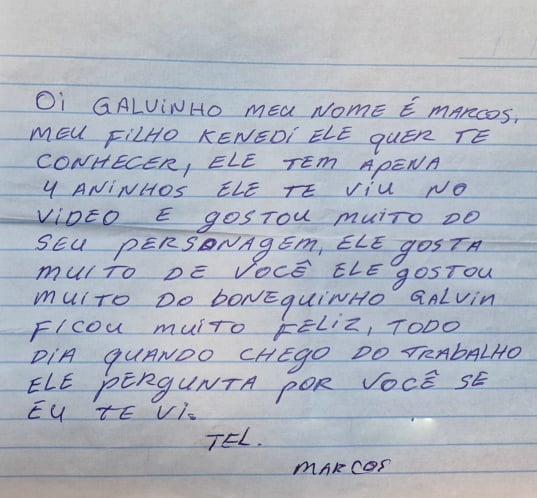 Oi GALVINHO MEU NOME É MARCOS,
MEU FILHO KENEDI ELE QUER TE
CONHECER, ELE TEM APENA
4 ANINHOS ELE TE VIU NO
VIDEO E GOSTOU MUITO DO
SEU PERSONAGEM, ELE GOSTA
MUITO DE VOCÊ ELE GOSTOU
MUITO DO BONEQUINHO GALVIN
FICOU MUITO FELIZ, TODO
DIA QUANDO CHEGO DO TRABALHO
ELE PERGUNTA POR VOCÊ SE
EU TE VI.
TEL.
MARCOS